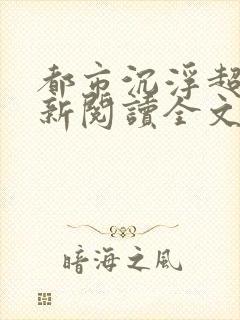 都市沉浮超
新閱讀全文
暗海之风